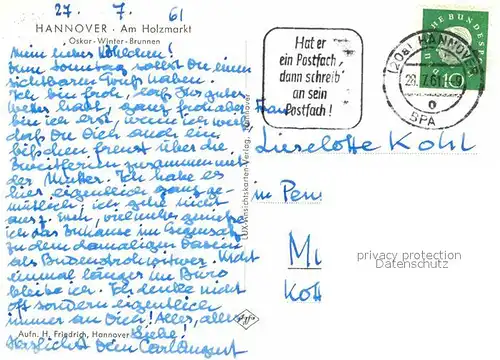 27. 7. 61
HANNOVER · Am Holzmarkt
Oskar-Winter-Brunnen
Mein liebes Kohlchen!
Zum Sonntag sollst Du einen
sichtbaren Gruß haben.
Ich bin froh, daß Ihr gutes
Wetter habt, ganz froh aber
bin ich erst, wenn ich weiß
daß Du Dich auch ein
bißchen freust über die
Zweitferien zusammen mit
der Mutter. Ich habe es
hier eigentlich ganz ge-
mütlich; ich gehe nicht
aus. Enn, vielmehr genieße
ich das Zuhause im Gegensatz
zu dem damaligen Dasein
als Budenstrohwitwer. Nicht
einmal länger im Büro
bleibe ich. Ich denke nicht
oft sondern eigentlich
immer an Dich! Alles, alles
Liebe!
Herzlichst Dein Carlaugust
Aufn. H. Friedrich, Hannover
LUX-Ansichtskarten-Verlag, Hannover
Agfa
Hat er
ein Postfach,
dann schreib
an sein
Postfach!
(20a) HANNOVER
28.7.61-19
o
5PA
DEUTSCHE BUNDESPOST
10
Frau
Lieselotte Kohl
in Pen
Mi
Kott
privacy protection
Datenschutz